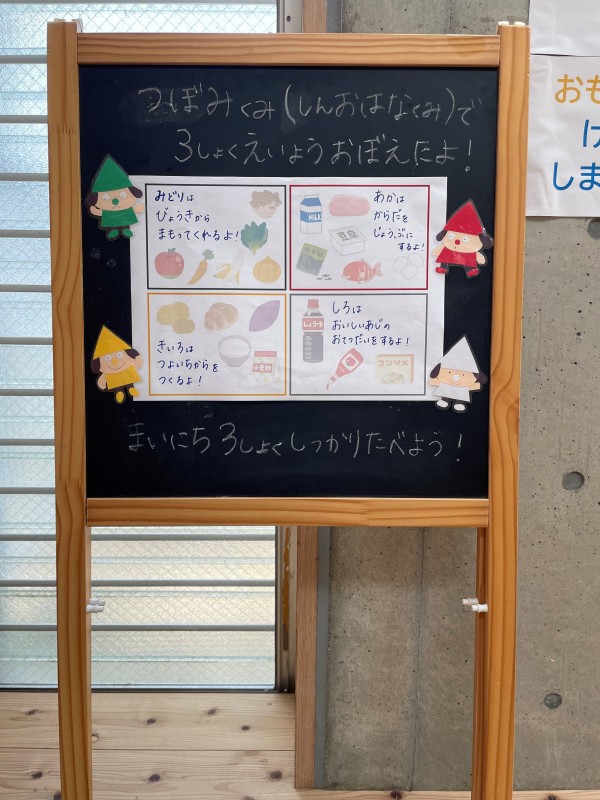 つぼみぐみ(しんおはなぐみ)で
3しょくえいようおぼえたよ!
みどりは
びょうきから
まもってくれるよ!
MILK
豆腐
あかは
からだを
じょうぶに
するよ!
きいろは
つよいちからを
つくるよ!
しょうゆ
しろは
おいしいあじの
おてつだいをするよ!
コンソメ
まいにち3しょくしっかりたべよう!
おも
け
しま